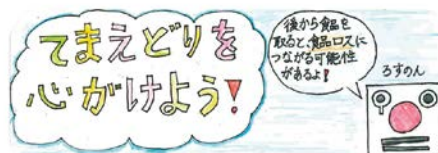 てまえどりを
心がけよう!
後から食品を
取ると、食品ロスに
つながる可能性
があるよ!
ろすのん